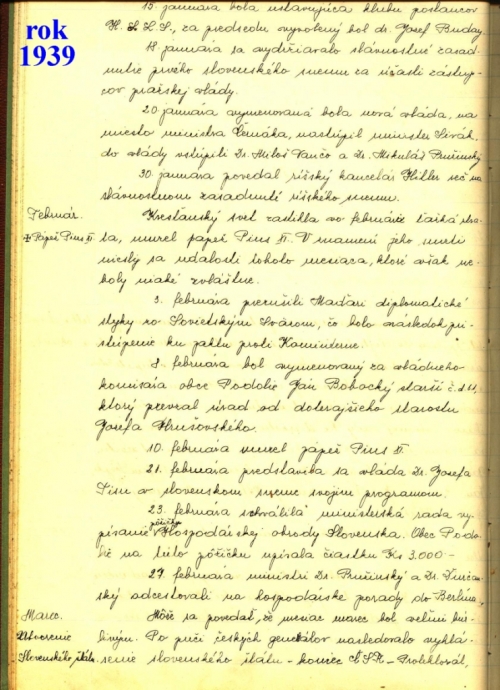 rok
1939
15. januára bola ustavujúca klubu poslancov
H. S. Ľ. S., za predsedu vyvolený bol dr. Jozef Buday
18. januára sa vydržiavalo slávnostné zasad-
nutie prvého slovenského snemu za účasti zástup-
cov pražskej vlády.
20. januára vymenovaná bola nová vláda, na
miesto ministra Černáka, nastúpil minister Sivák,
do vlády vstúpili Dr. Miloš Vančo a Dr. Mikuláš Pružinský
30. januára povedal ríšský kancelár Hitler reč na
slávnostnom zasadnutí ríšského snemu.
Február.
Kresťanský svet zastihla vo februári ťažká stra-
✠ Pápež Pius XI.
ta, umrel pápež Pius XI. V znamení jeho, smrti
niesly sa udalosti tohoto mesiaca, ktoré však ne-
boly niaké zvláštne.
3. februára prerušili Maďari diplomatické
styky so Sovietským Sväzom, čo bolo následok pri-
stúpenie ku paktu proti Kominterne.
8. februára bol vymenovaný za vládneho
komisára obce Podolie Ján Bobocký starší č.
ktorý prevzal úrad od doterajšieho starostu
Jozefa Hrušovského.
10. februára umrel pápež Pius XI.
21. februára predstavila sa vláda Dr. Jozefa
Tisu v slovenskom sneme svojim programom.
23. februára schválila ministerská rada vy-
písanie pôžičky Hospodárskej obrody Slovenska. Obec Podo-
lie na túto pôžičku upísala čiastku Ks 3.000-
27. februára ministri Dr. Pružinský a Dr. Ďurčan-
ský odcestovali na hospodárske porady do Berlína.
Marec.
Môže sa povedať, že mesiac marec bol veľmi búr-
Utvorenie
livým. Po puči českých generálov nasledovalo vyhlá-
Slovenského štátu.
senie slovenského štátu - koniec Č.S.R. - Protektorát,